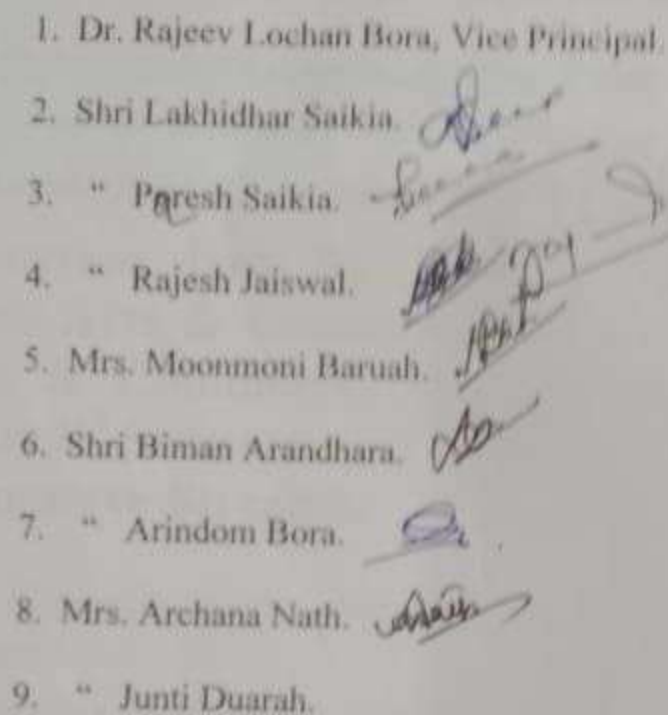 1. Dr. Rajeev Lochan Bora, Vice Principal.
2. Shri Lakhidhar Saikia.
3. “ Paresh Saikia.
4. “ Rajesh Jaiswal.
5. Mrs. Moonmoni Baruah.
6. Shri Biman Arandhara.
7. “ Arindom Bora.
8. Mrs. Archana Nath.
9. “ Junti Duarah.